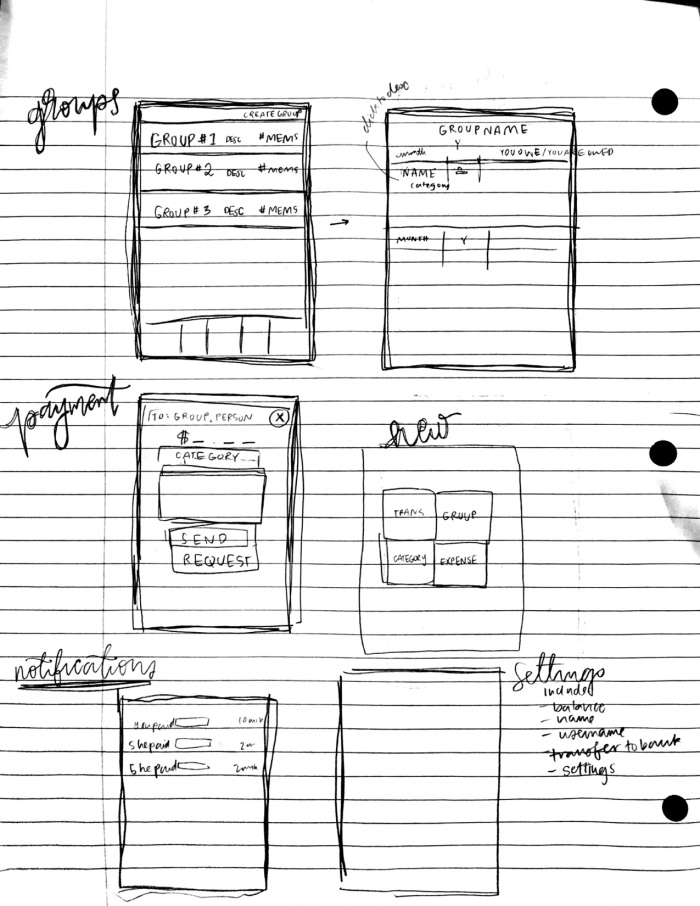 groups
CREATE GROUP
GROUP #1 DESC #MEMS
GROUP #2 DESC #MEMS
GROUP #3 DESC #MEMS
click to desc
GROUPNAME
month Y YOU OWE/YOU ARE OWED
NAME
category
MONTH Y
payment
TO: GROUP, PERSON X
$ _ . _ _
CATEGORY
SEND
REQUEST
new
TRANS GROUP
CATEGORY EXPENSE
notifications
you paid
She paid
She paid
settings
included
- balance
- name
- username
- transfer to bank
- settings